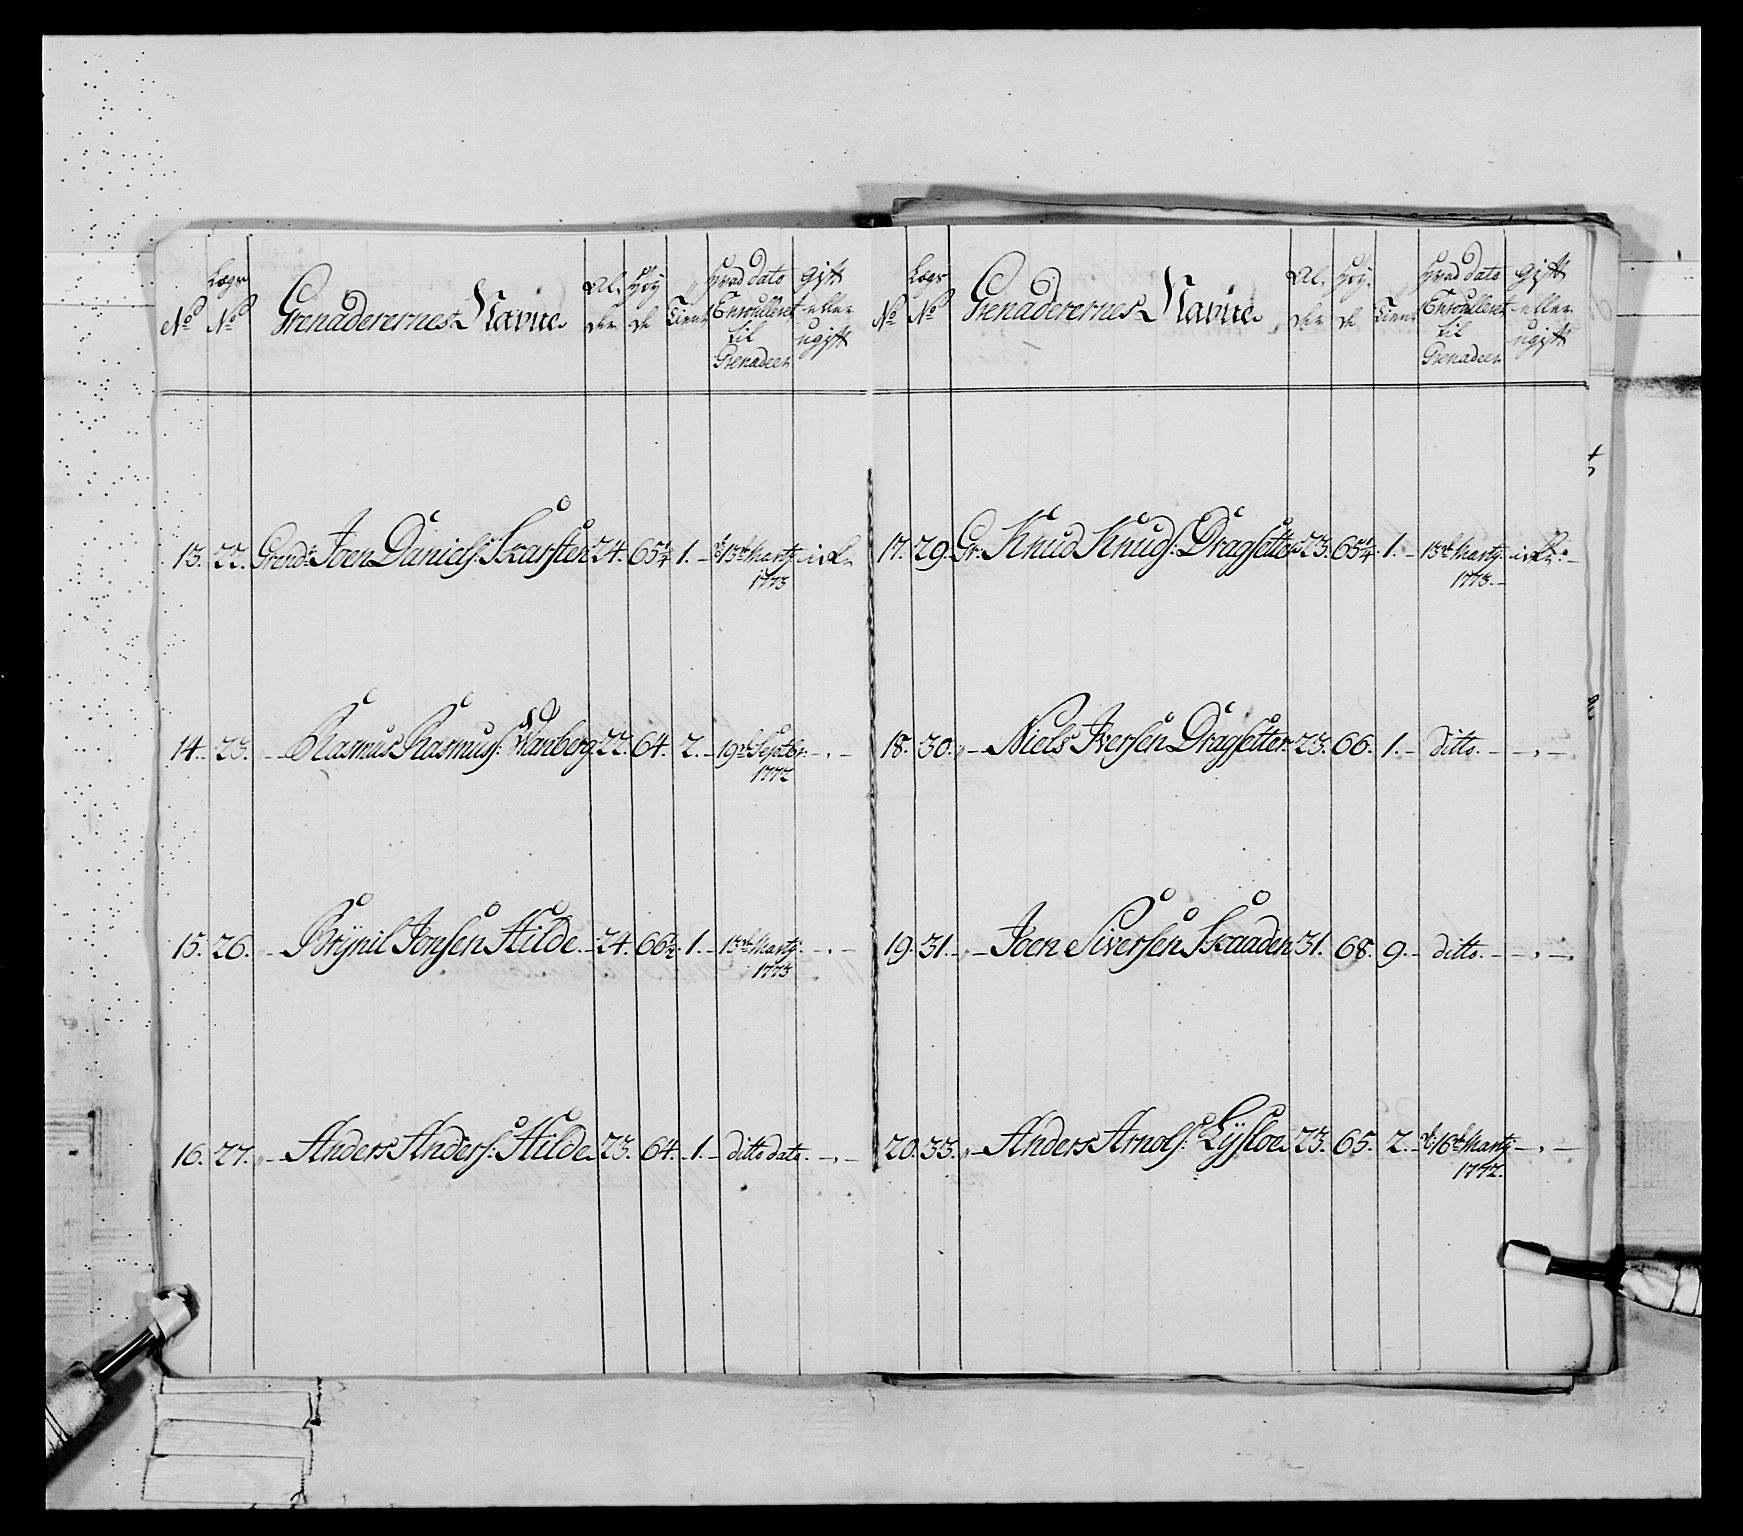 No
Lægs No
Grenaderernes Navne
Al-der
Høy-de
Tient
Hvad dato Enroulleret til Grenadeer
gift eller ugift
13. 22. Grend: Joen Daniels: Skarsten 24. 65 1/4 1. – d: 13de Marty 1773 ick-
14. 23. „ – Rasmus Rasmus: Wanberg 22. 64. 2. – 19de Septbr: 1772 – „ –
15. 26. „ – Brynil Jonsen Hilde – 24. 66 1/2 1. – 13de Marty: 1773 – „ –
16. 27. „ – Anders Anders: Hilde 23. 64. 1. – ditto dato. – „ –
No
Lægs No
Grenaderernes Navne
Al-der
Høy-de
Tient
Hvad dato Enroulleret til Grenadeer
gift eller ugift
17. 29. Gr. Knud Knuds: Dragsetter 23. 65 1/4 1. – 13de Marty: 1773. – ick: –
18. 30. „ – Niels Iversen Dragsetter 23. 66. 1. – ditto. – – „ –
19. 31. „ – Joen Siversen Skaaden 31. 68. 9. – ditto. – – „ –
20. 33. „ – Anders Arnols: Lysloe 23. 65. 2. – d: 16de Marty 1772. – „ –